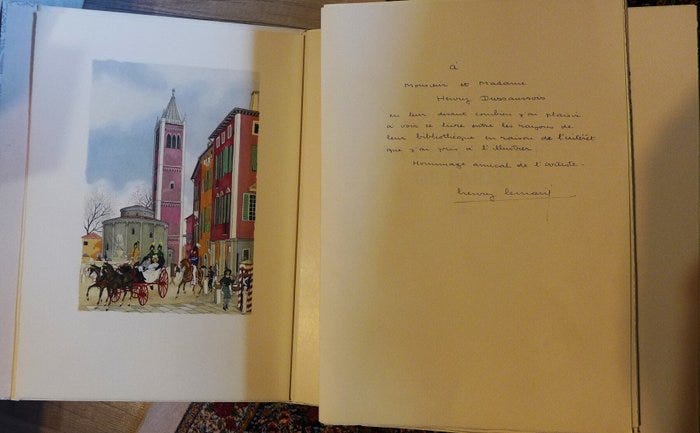 à
Monsieur et Madame
Henry Dussaussois
en leur disant combien j'ai plaisir
à voir ce livre entre les rayons de
leur bibliothèque en raison de l'intérêt
que j'ai pris à l'illustrer
Hommage amical de l'artiste.